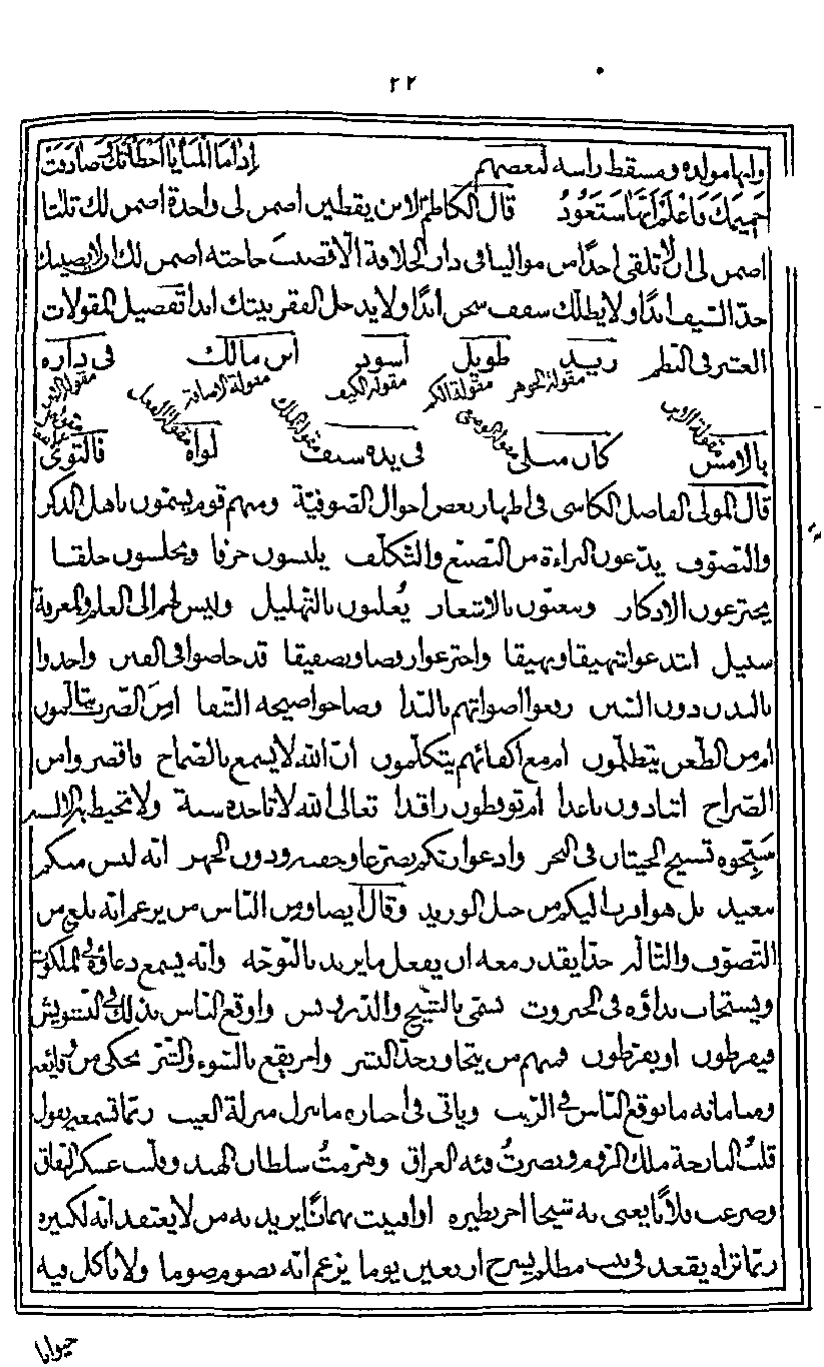 ٢٢
وايها مولده ومسقط راسه لبعضهم إذا ما المنايا أخطأتك وصادفت
حميمك فاعلم أنها ستعود قال الكاظمؑ لابن يقطين اضمن لى واحدة اضمن لك ثلثا
اضمن لى ان لا تلقى احدا من موالينا فى دار الخلافة الا قضيت حاجته اضمن لك ان لا يصيبك
حدّ السيف ابدا ولا يظلّك سقف سجن ابدا ولا يدخل الفقر بيتك ابدا تفصيل المقولات
العشر فى النظم زيد طويل اسود ابن مالك فى داره
مقولة الجوهر مقولة الكم مقولة الكيف مقولة الاضافة مقولة الاين
بالامس كان متكى فى يده سيف لواه فالتوى
مقولة الوضع مقولة الملك مقولة الفعل
قال المولى الفاضل الكاشى فى اظهار بعض احوال الصّوفيّة ومنهم قوم يسمّون باهل الذكر
والتصوّف يدّعون البراءة من التصنّع والتكلّف يلبسون خرقا ويجلسون حلقا
يخترعون الاذكار ويتغنّون بالاشعار يُعلنون بالتهليل وليس لهم الى العلم والمعرفة
سبيل ابتدعوا شهيقا ونهيقا واخترعوا رقصا وتصفيقا قد خاضوا فى الفتن واخذوا
بالبدع دون السنن رفعوا اصواتهم بالندا وصاحوا صيحة الشقا امن الضّرب يتألّمون
ام من الطّعن يتظلّمون ام مع اكفائهم يتكلّمون انّ الله لا يسمع بالصّماخ فاقصروا من
الصّراخ اتنادون باعدا ام توقظون راقدا تعالى الله لا تاخذه سنة ولا تحيط به الالسنه
سبّحوه تسبيح الحيتان فى البحر وادعوا ربّكم تضرّعا وخفية ودون الجهر انه ليس منكم
ببعيد بل هو اقرب اليكم من حبل الوريد وقال ايضا ومن النّاس من يزعم انه بلغ من
التصوّف والتألّه حدّا يقدر معه ان يفعل ما يريد بالتوجّه وانه يسمع دعاؤه فى الملكوت
ويستجاب نداؤه فى الجبروت تسمّى بالشيخ والدّرويش واوقع النّاس بذلك فى التشويش
فيفرطون او يفرّطون فمنهم من يتجاوز به حدّ البشر واخر يقع بالسّوء والشرّ يحكى من وقايعه
ومناماته ما يوقع النّاس فى الرّيب وياتى فى اخباره ما ينزل منزلة الغيب ربّما تسمعه يقول
قتلتُ البارحة ملك الرّوم ونصرتُ فئة العراق وهزمتُ سلطان الهند وقلبت عسكر النفاق
وصرعت فلانا يعنى به شيخا اخر نظيره او افنيت بهمانا يريد به من لا يعتقد انه لكبيره
ربّما تراه يقعد فى بيت مظلم يسرج اربعين يوما يزعم انّه يصوم صوما ولا يأكل فيه
حيوانا